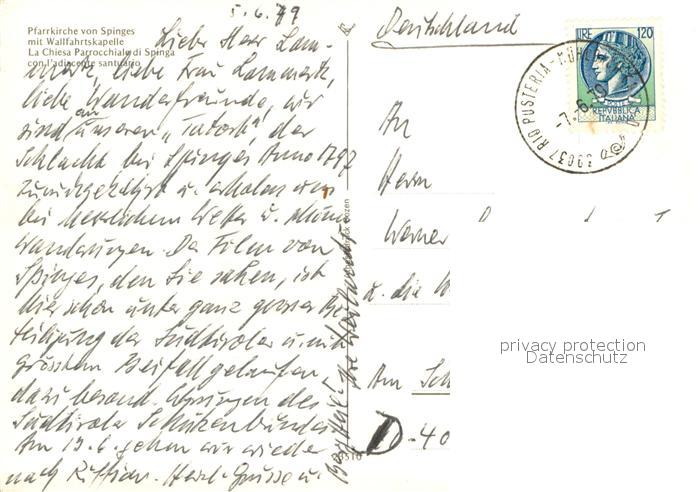 5.6.79
Pfarrkirche von Spinges
mit Wallfahrtskapelle
La Chiesa Parrocchiale di Spinga
con l'adiacente santuario
Liebe Herr Lam-
liebe Frau
liebe Wanderfreunde, wir
sind an unseren „Tatort“, der
Schlacht bei Spinges Anno 1797
zurückgekehrt u. erholen uns
bei herrlichem Wetter u. schönen
Wanderungen. Der Film von
Spinges, den Sie sahen, ist
hier schon unter ganz grosser Be-
teiligung der Südtiroler u. mit
grösstem Beifall gelaufen,
dazu besond. des
Südtiroler Schützenbundes
Am 13.6. gehen wir wieder
nach Herzl. Grüsse u.
Deutschland
LIRE 120
POSTE
REPVBBLICA
ITALIANA
39037 RIO PUSTERIA - MÜHL
-7.-6.79
An
Herrn
Werner
u. die W
Am Sch
D-40
privacy protection
Datenschutz